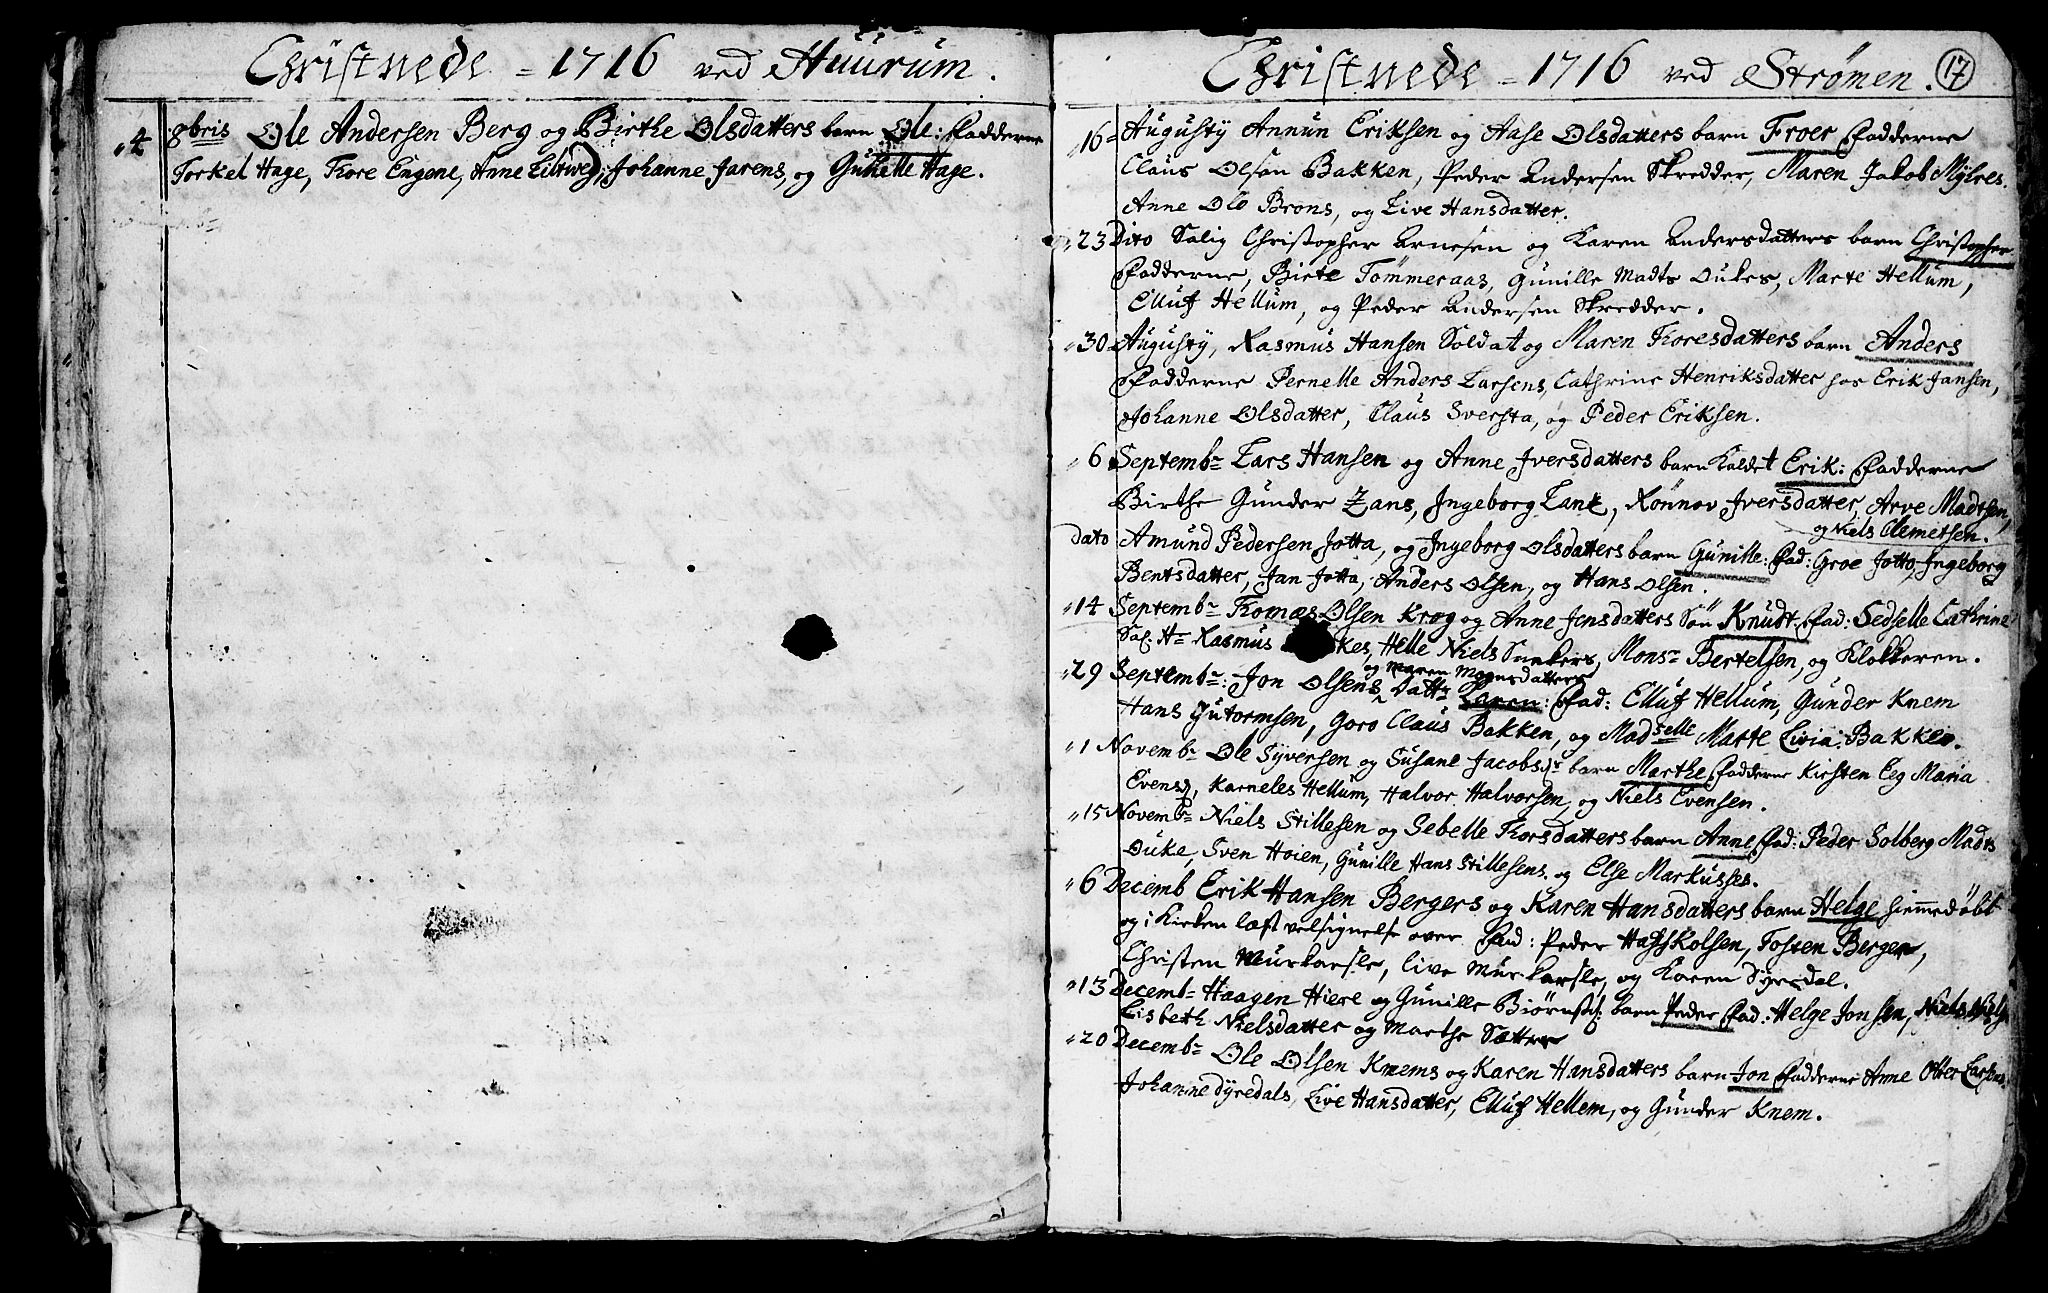 Christnede = 1716 ved Huurum.
4 8bris Ole Andersen Berg og Birthe Olsdatters barn Ole: Fadderne
Torkel Hage, Tore Engene, Anne Johanne Jarens, og Hage.
Christnede = 1716 ved Strömen. 17
16 Augusty Annun Eriksen og Aase Olsdatters barn Froer Fadderne
Claus Olsøn Bakken, Peder Andersen Skredder, Maren Jakob Mylres.
Anne Ole Brøns, og Live Hansdatter.
23 Dito Salig Christopher Arnesen og Karen Andersdatters barn Christopher
Fadderne, Birte Tömmeraas, Gunille Madts Dukes, Marte Hellum,
Elluf Hellum, og Peder Andersen Skredder.
30 Augusty, Rasmus Hansen Soldat og Maren Toresdatters barn Anders
Fadderne Pernelle Anders Larsens, Cathrine Henriksdatter hos Erik Jansen,
Johanne Olsdatter, Claus Sversta, og Peder Eriksen.
6 Septembr Lars Hansen og Anne Jversdatters barn Kaldet Erik: Fadderne
Birthe Gunder Zans, Jngeborg Lane, Rönnov Jversdatter, Arve Madtsen,
og Niels Clemetsen.
dato Amund Pedersen Jotta, og Jngeborg Olsdatters barn Gunille: Fad: Groe Jotto, Jngeborg
Bentsdatter, Jan Jotta, Anders Olsen, og Hans Olsen.
14 Septembr Tomæs Olsen Krog og Anne Jensdatters Sön Knudt. Fad: Sedselle Cathrine
Sal. Hr Rasmus kes, Helle Niels Snekers, Monsr Bertelsen, og Klokkeren.
og Maren Mognsdatters
29 Septembr: Jon Olsens Dattr Karen: Fad: Elluf Hellum, Gunder Knem
Hans Gutormsen, Goro Claus Bakken, og Madselle Marte Livia Bakken.
1 Novembr Ole Syversen og Susane Jacobsdr barn Marthe Fadderne Kirsten Eeg Maria
Evensd, Karneles Hellum, Halvor Halvorsen, og Niels Evensen.
15 Novembr Niels Stillesen og Sebelle Torsdatters barn Anne Fad: Peder Solberg Madts
Duke, Sven Hoien, Gunille Hans Stillesens, og Else Markusses.
6 Decemb Erik Hansen Bergers og Karen Hansdatters barn Helge hiemedöbt
og i Kirken læst velsignelse over Fad: Peder Hasskolsen, Tosten Bergen,
Christen Murkarsle, live Murkarsle, og Karen Syresdal.
13 Decembr Haagen Hiere og Gunille Biörnsd: barn Peder Fad: Helge Jonsen, Niels Niels
Lisbeth Nielsdatter og Marthe Sætter
20 Decembr Ole Olsen Knems og Karen Hansdatters barn Jon Fadderne Anne Otter Larsens
Johanne Dyredals, Live Hansdatter, Elluf Hellem, og Gunder Knem.